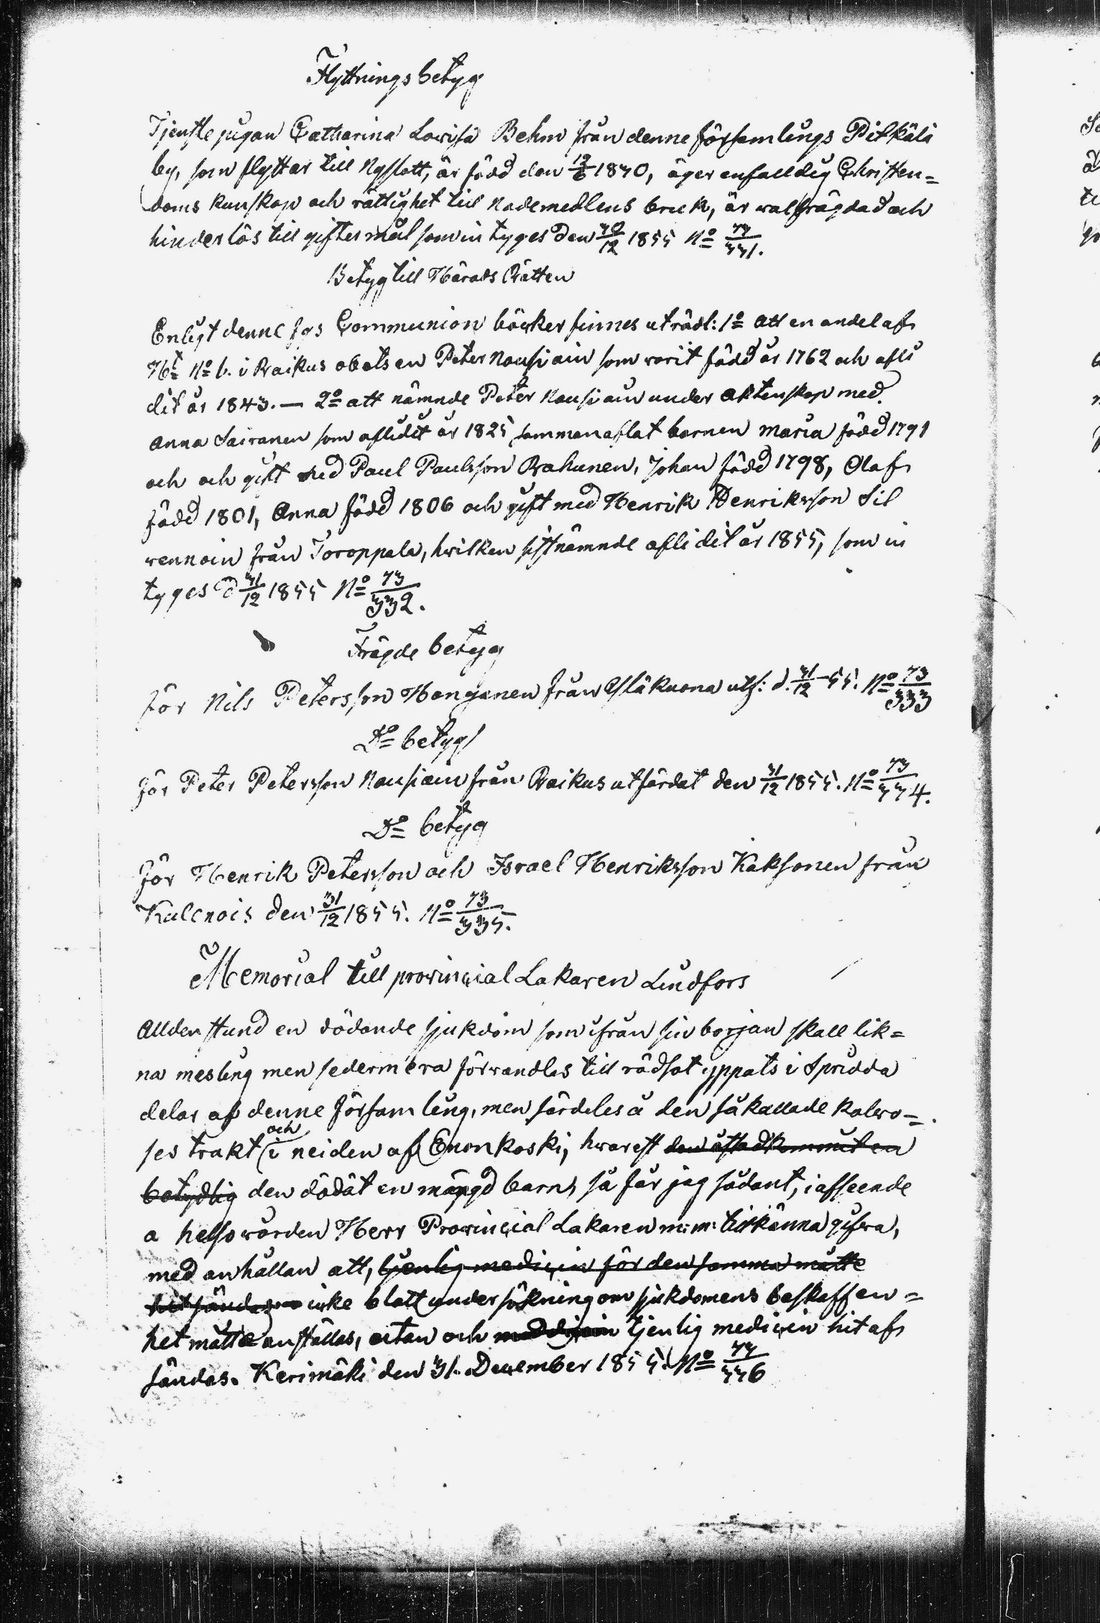 Flyttningsbetyg
Tjenste pigan Catharina Lovisa Behm från denne församlings Pitkälä
by, som flyttar till Nyslott, är född den 12/6 1840, äger enfalldig Christen=
doms kunskap och rättighet till nademedlens bruk, är walfrägdad och
hinderlös till giftermål som in tyges den 30/12 1855 No 73/331.
Betyg till Härads Rätten
Enligt denne fös Communion böcker finnes uträdt: 1o att en andel af
Ht No 6. i Raikus obotsen Peter Nousiain som varit född år 1762 och afli
dit år 1843. — 2o att nämnde Peter Nousiain under äktenskap med
Anna Sairanen som aflidit år 1825 sammanaflat barnen Maria född 1791
och och gift med Paul Paulsson Rahunen, Johan född 1798, Olaf
född 1801, Anna född 1806 och gift med Henrik Henriksson Sil
vennoin från Toroppala, hvilken sistnämnde aflidit år 1855, som in
tyges d 31/12 1855 No 73/332.
Frägde betyg
för Nils Petersson Hongonen från utf: d. 31/12 -55. No 73/333
Do betyg
för Peter Petersson Nousiain från Raikus utfärdat den 31/12 1855. No 73/334.
Do betyg
för Henrik Petersson och Israel Henriksson Kaksonen från
Kulenois den 31/12 1855. No 73/335.
Memorial till provincial Läkaren Lindfors
Alldenstund en dödande sjukdom som ifrån sin början skall lik=
na mesling men sedermera förvandlas till rödsot yppats i spridda
delar af denne församling, men särdeles å den så kallade Kalvo=
ses trakt och i neiden af Enonkoski, hvarest den åstadkommit en
betydlig den dödat en mängd barn, så får jag sådant, i afseende
a helsovården Herr Provincial Läkaren m: m: tillkänna gifva,
med anhållan att, tjenlig medicin för den samma måtte
hitsändas icke blott undersökning om sjukdomens beskaffen=
het måtte anställas, utan och medicin tjenlig medicin hit af
sändas. Kerimäki den 31. December 1855. No 73/336